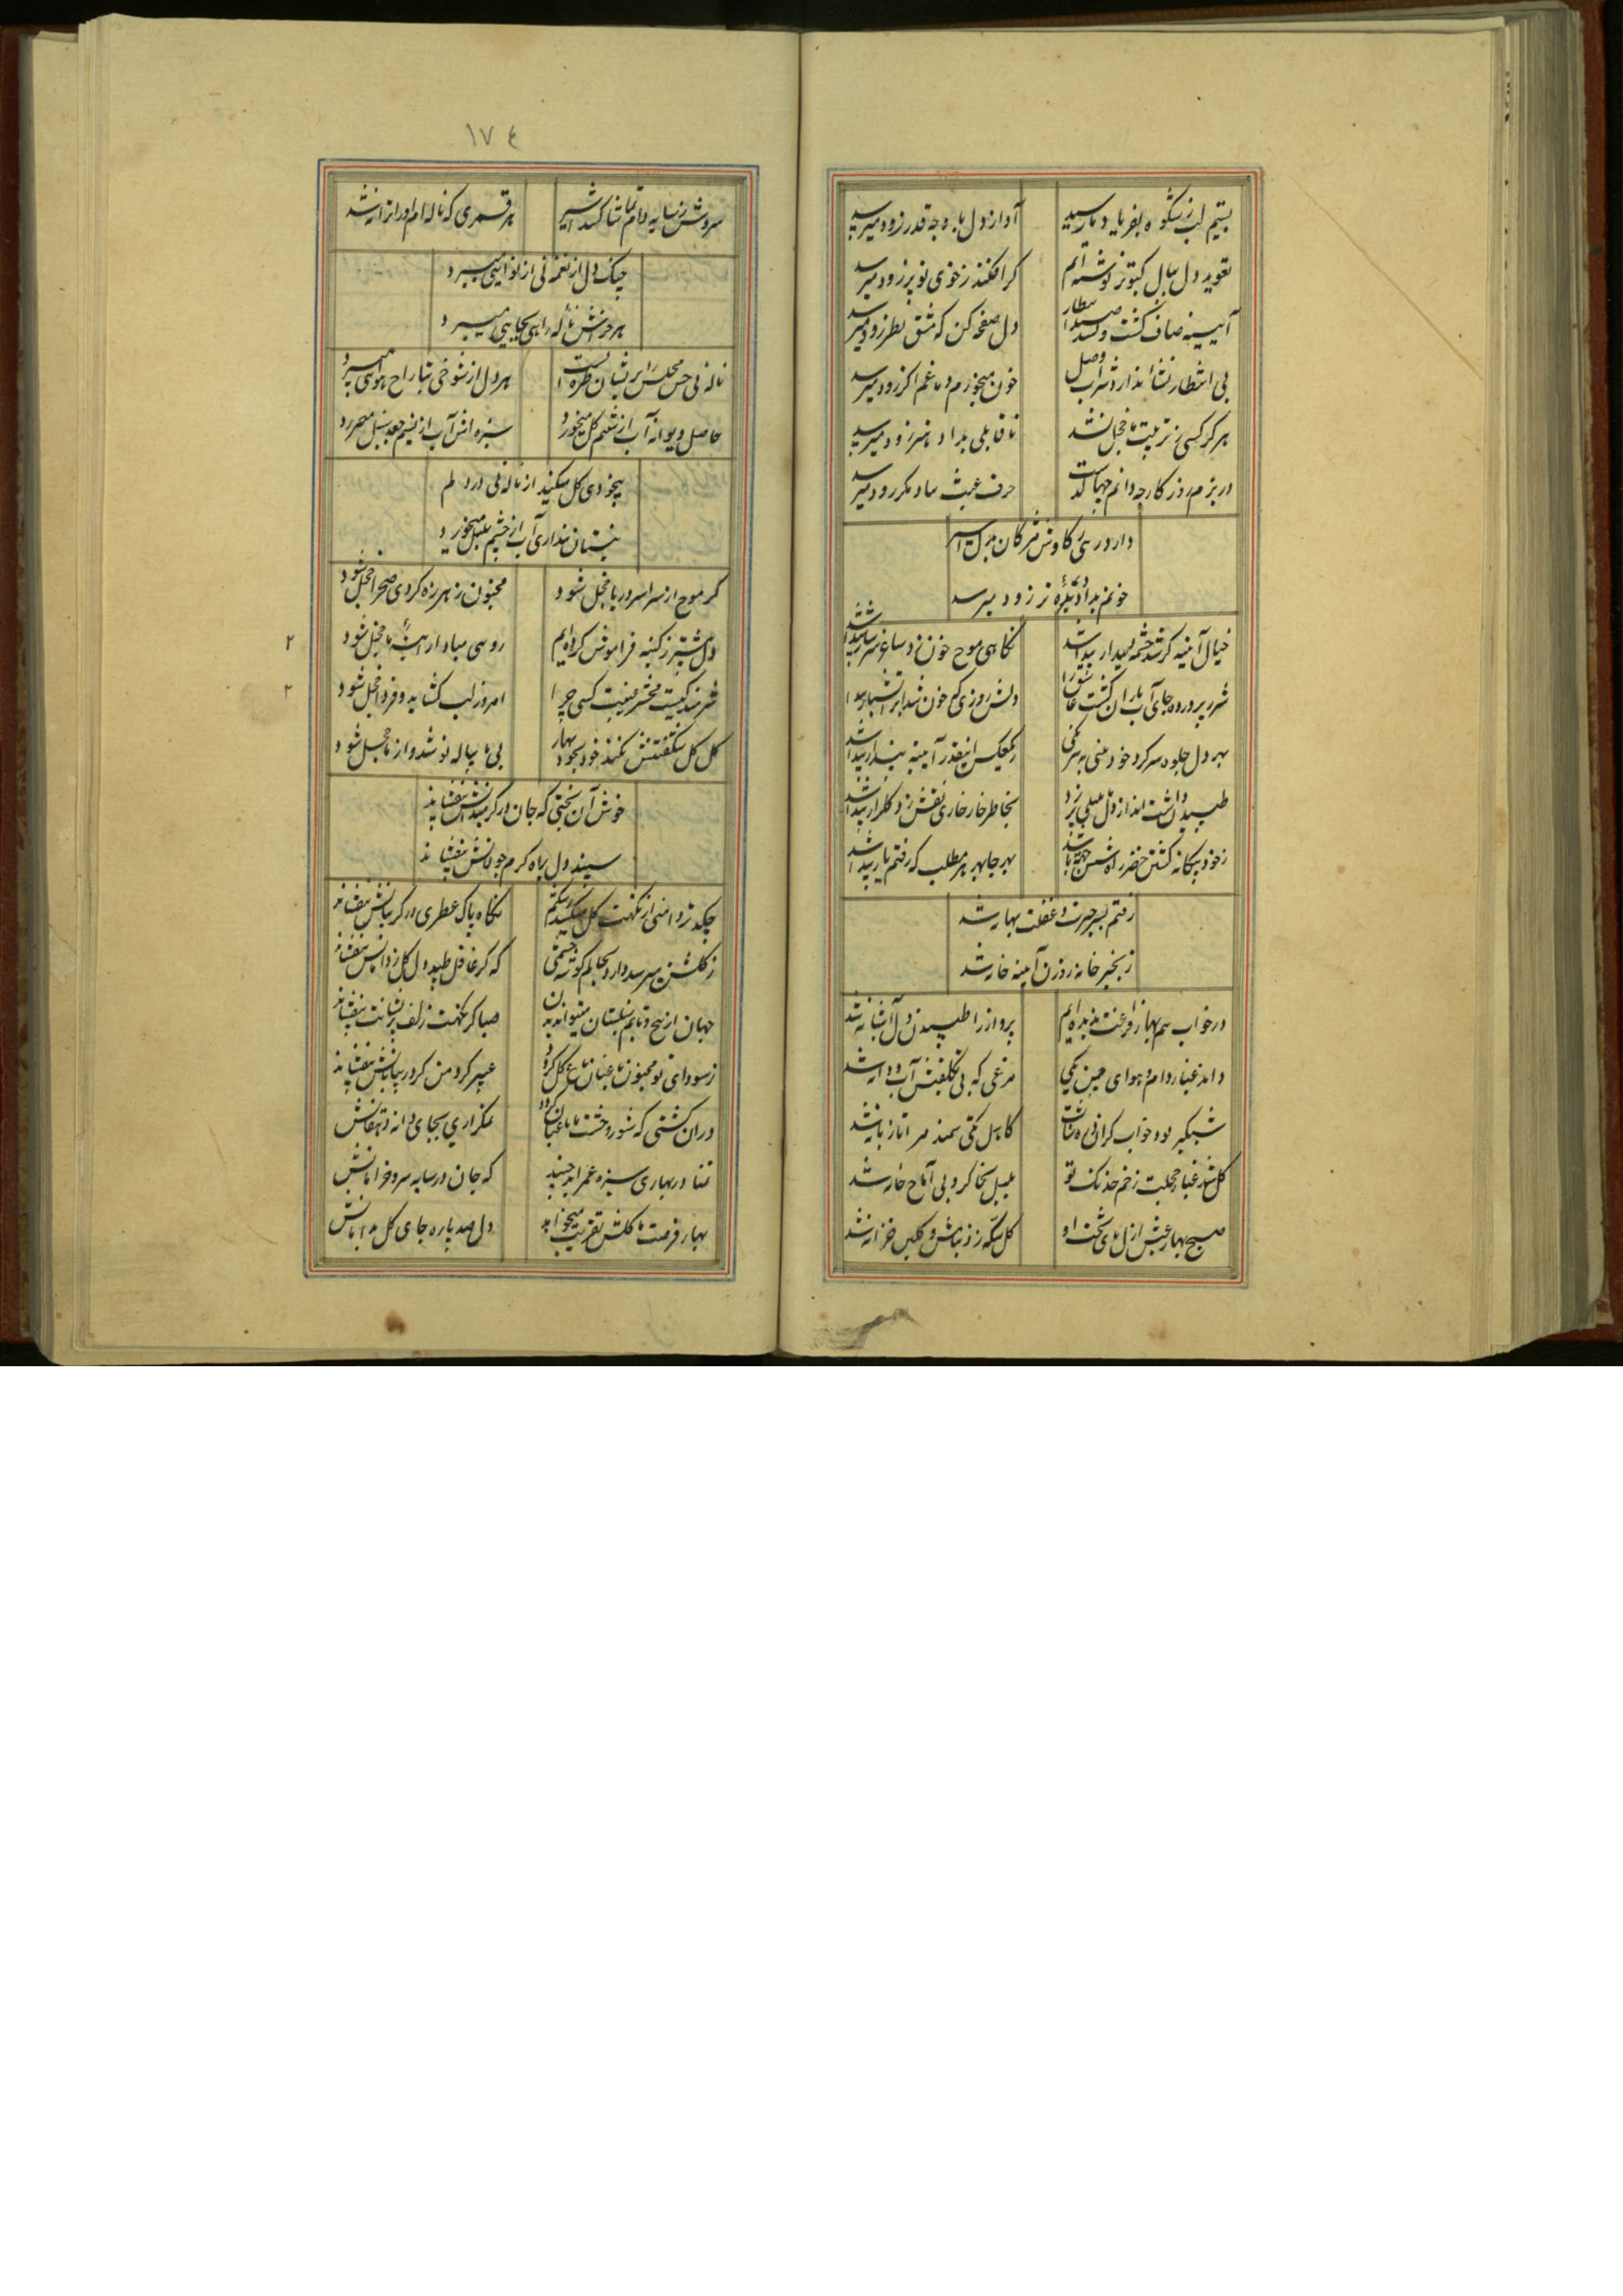 بستیم لب ز شکوه بفریاد ما رسید آواز دل بما چه قدر زود میرسد
تعوید دل ببال کبوتر نوشته ایم گر افکند ز خوی تو پر زود میرسد
آیینه صاف گشت و دل صفحه کن که مشق نظر زود میرسد
بی انتظار نشأ ندارد شراب وصل خون میخورم دماغم اگر زود میرسد
هر کز کسی ز تربیت ما خجل نشد ناقابلی بداد هنر زود میرسد
در بزم روزگار چه دانم جهاست حرف عبث بیاد مکرر زود میرسد
دارد رهی ز کاوش مژگان بدل اسیر
خونم بداد دیدهٔ تر زود میرسد
خیال آینه گر شد چشم بیدار پیدا شد نگاهی موج خون زد ساغر سرشار پیدا شد
شرر پرورده جای آب باران گشت دلش روزی که خون شد ابر آتشبار پیدا شد
بهر دل جلوه سر کرد خود بینی ز یک عکس اینقدر آیینه پندار پیدا شد
طپیدن داشت انداز دل بلبل بخاطر خار خاری نقش زد گلزار پیدا شد
ز خود بیگانه گشتن خضر راهش بهر جا بهر هر مطلب که رفتم یار پیدا شد
رفتم بسیر حیرت و غفلت بهانه شد
زنجیر خانه روزن آیینه خانه شد
در خواب هم بهار فراغت ندیده ایم پرواز را طپیدن دل آشیانه شد
دامد غبار دام و هوای چمن یکی مرغی که بی تکلفش آب و دانه شد
شبگیر بود خواب گرانی کاهل تکی سمند مرا تازیانه شد
گل شد غبار خجلت زخم خدنگ تو بلبل بخاک رو بی آماج خانه شد
صبح بهار عیش از دل پای تخت او گل سکه زد ز تابش و گلبن خزانه شد
۱۷٤
سروش ز سایه دام تماشا کند اسیر هر قمری که ناله ام او را ترانه شد
چنگ دل از نغمه نی از نوایی میبرد
هر خراش ناله راهی بجایی میبرد
ناله نی حس مجلس را پریشان طره است هر دل از شوخی بتاراج هوایی میبرد
حاصل دیوانه آب از شبنم گل میخورد سبزه اش آب از نسیم جعد سنبل میخورد
بیخودی گل میکند از ناله نی در دلم
نیستان پنداری آب از چشم بلبل میخورد
گر موج از سراسر دریا خجل شود مجنون ز هرزه گردی صحرا خجل شود
دل بیشتر ز کینه فراموش کرده ایم روسی مباد از ما خجل شود
۲
شرمنده کیست محشر غیبت کسی چرا امروز لب گشاید و فردا خجل شود
۲
گل گل شکفتنش نکند خود بخود بهار بی ما پیاله نوشد و از ما خجل شود
خوش آن بختی که جان در گرد میدانش بیفشاند
سپند دل براه گرم جولانش بیفشاند
چکد تر دامنی از نکهت گل نگاه پاک عطری در گریبانش بیفشاند
ز گلشن میرسد دارد بجایم گوشه چشمی که گر غافل طپد دل گل ز دامانش بیفشاند
جهان از پیچ و تابم سنبلستان میتواند شد صبا گر نکهت زلف پریشانت بیفشاند
ز سودای تو مجنون باغبان باغ گل گردد عبیر گرد من گر در بیابانش بیفشاند
در آن کشتی که شور وحشت ما باغبان گردد مگر آری بجای دانه دهقانش
تمنا در بهاری سبزه عمر ابد چیند که جان در سایه سرو خرامانش
بهار فرصت ما گلشن تقریب میخواهد دل صد پاره جای گل بدامانش